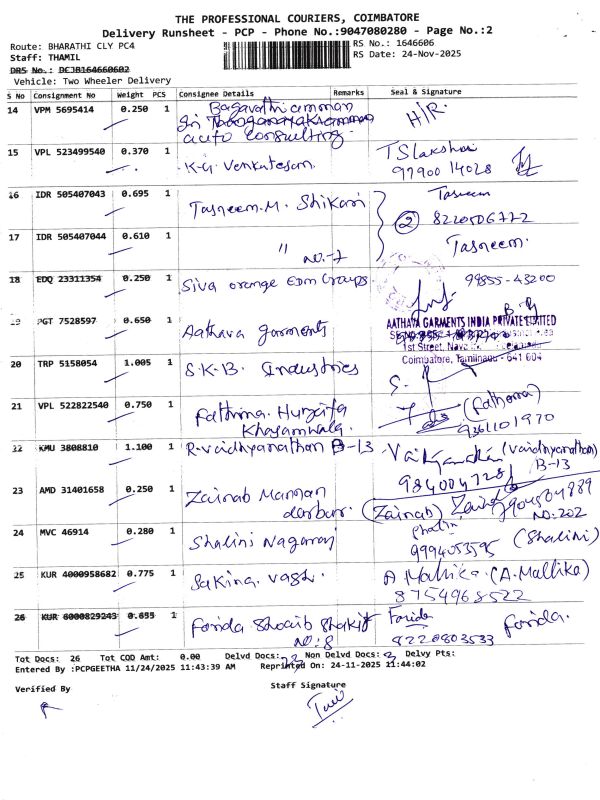 THE PROFESSIONAL COURIERS, COIMBATORE
Delivery Runsheet - PCP - Phone No.:9047080280 - Page No.:2
Route: BHARATHI CLY PC4
RS No.: 1646606
Staff: THAMIL
RS Date: 24-Nov-2025
DRS No.: DCJB164660602
Vehicle: Two Wheeler Delivery
S No Consignment No Weight PCS Consignee Details Remarks Seal & Signature
14 VPM 5695414 0.250 1 Bagavathi amman
Sri
auto consulting.
H/R.
15 VPL 523499540 0.370 1 K.G. Venkatesan.
TSlakshmi
97900 14028
16 IDR 505407043 0.695 1 Tasneem.M. Shikari
Tasneem
2 8220506772
17 IDR 505407044 0.610 1 " NO.-7
Tasneem.
18 EDQ 23311354 0.250 1 Siva orange Edm Groups
99855-43200
19 PGT 7528597 0.650 1 Aathava garments
AATHAVA GARMENTS INDIA PRIVATE LIMITED
1st Street,
Coimbatore, Tamilnadu - 641 604
20 TRP 5158054 1.005 1 S.K.B. Industries
S.
21 VPL 522822540 0.750 1 Fathima. Huzaifa
Khayamwala.
(Fathema)
9361101970
22 KMU 3808810 1.100 1 R.Vaidhyanathan B-13
(Vaidhyanathan)
9840047281 B-13
23 AMD 31401658 0.250 1 Zainab Mannan
darbar.
(Zainab) Zainab
NO:202
24 MVC 46914 0.280 1 Shalini Nagaraj
9994053595 (Shalini)
25 KUR 4000958682 0.775 1 Sakina. vagh.
A Mallika (A.Mallika)
8754968522
26 KUR 6000829243 0.655 1 Farida Shoaib Shakir
NO:8
Farida
8220803533 Farida.
Tot Docs: 26 Tot COD Amt: 0.00 Delvd Docs: 23 Non Delvd Docs: 3 Delvy Pts:
Entered By :PCPGEETHA 11/24/2025 11:43:39 AM Reprinted On: 24-11-2025 11:44:02
Verified By
Staff Signature